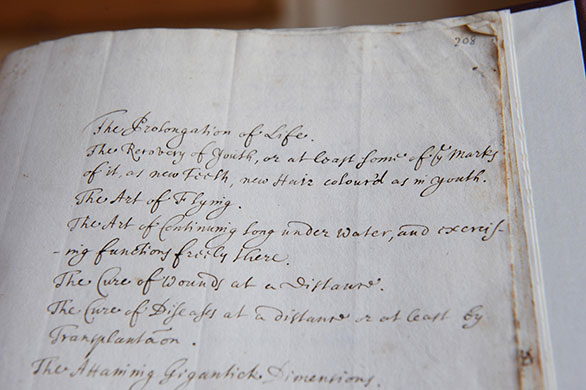 208
The Prolongation of Life.
The Recovery of Youth, or at least some of yͤ Marks
of it, as new Teeth, new Hair colour'd as in youth.
The Art of Flying.
The Art of Continuing long under water, and exercis-
-ing functions freely there.
The Cure of Wounds at a Distance.
The Cure of Diseases at a distance or at least by
Transplantaōn.
The Attaining Gigantick Dimensions.